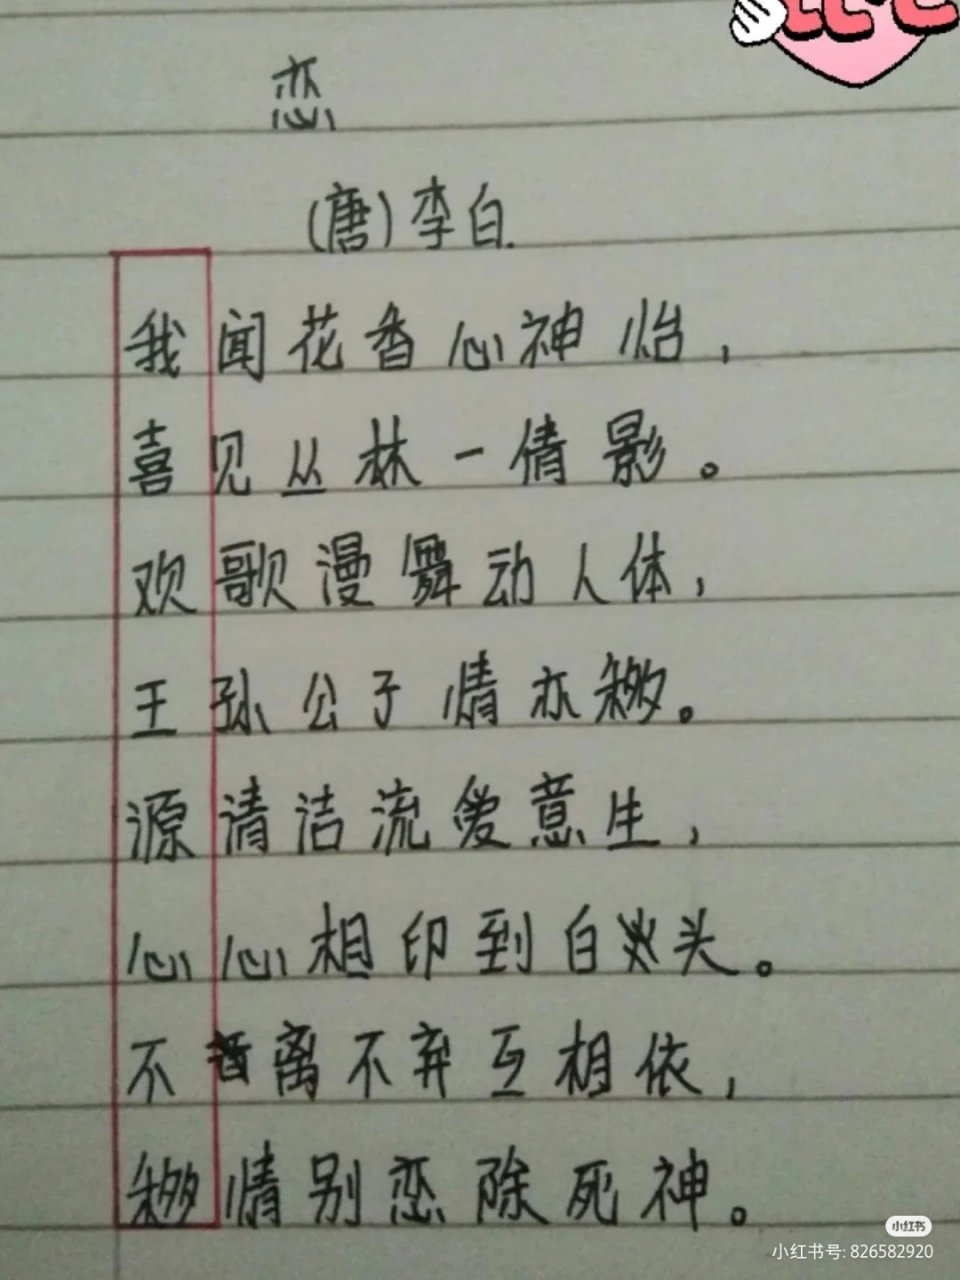 恋
(唐)李白.
我闻花香心神怡,
喜见丛林一倩影。
欢歌漫舞动人体,
王孙公子情亦移。
源清洁流爱意生,
心心相印到白头。
不离不弃互相依,
移情别恋除死神。
小红书
小红书号: 826582920